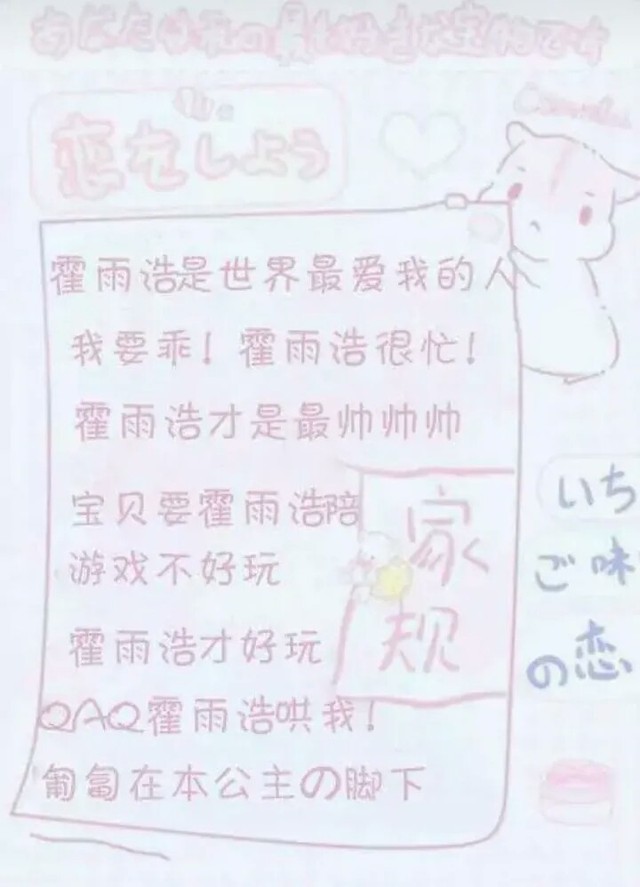 あなたは私の最も好きな宝物です
恋をしよう
霍雨浩是世界最爱我的人
我要乖！霍雨浩很忙！
霍雨浩才是最帅帅帅
宝贝要霍雨浩陪
游戏不好玩
霍雨浩才好玩
QAQ霍雨浩哄我！
匍匐在本公主の脚下
家
规
いち
ご味
の恋